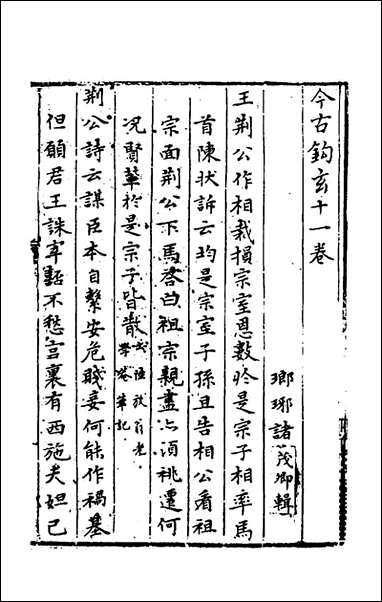 今古鈎玄十一卷
瑯琊諸茂卿輯
王荆公作相裁損宗室恩數於是宗子相率馬
首陳狀訴云均是宗室子孫且告相公看祖
宗面荆公下馬咨曰祖宗親盡亦須祧遷何
况賢輩於是宗子皆散
陸放翁老
學菴筆記
荆公詩云謀臣本自繫安危賤妾何能作禍基
但願君王誅宰嚭不愁宫裏有西施夫妲己